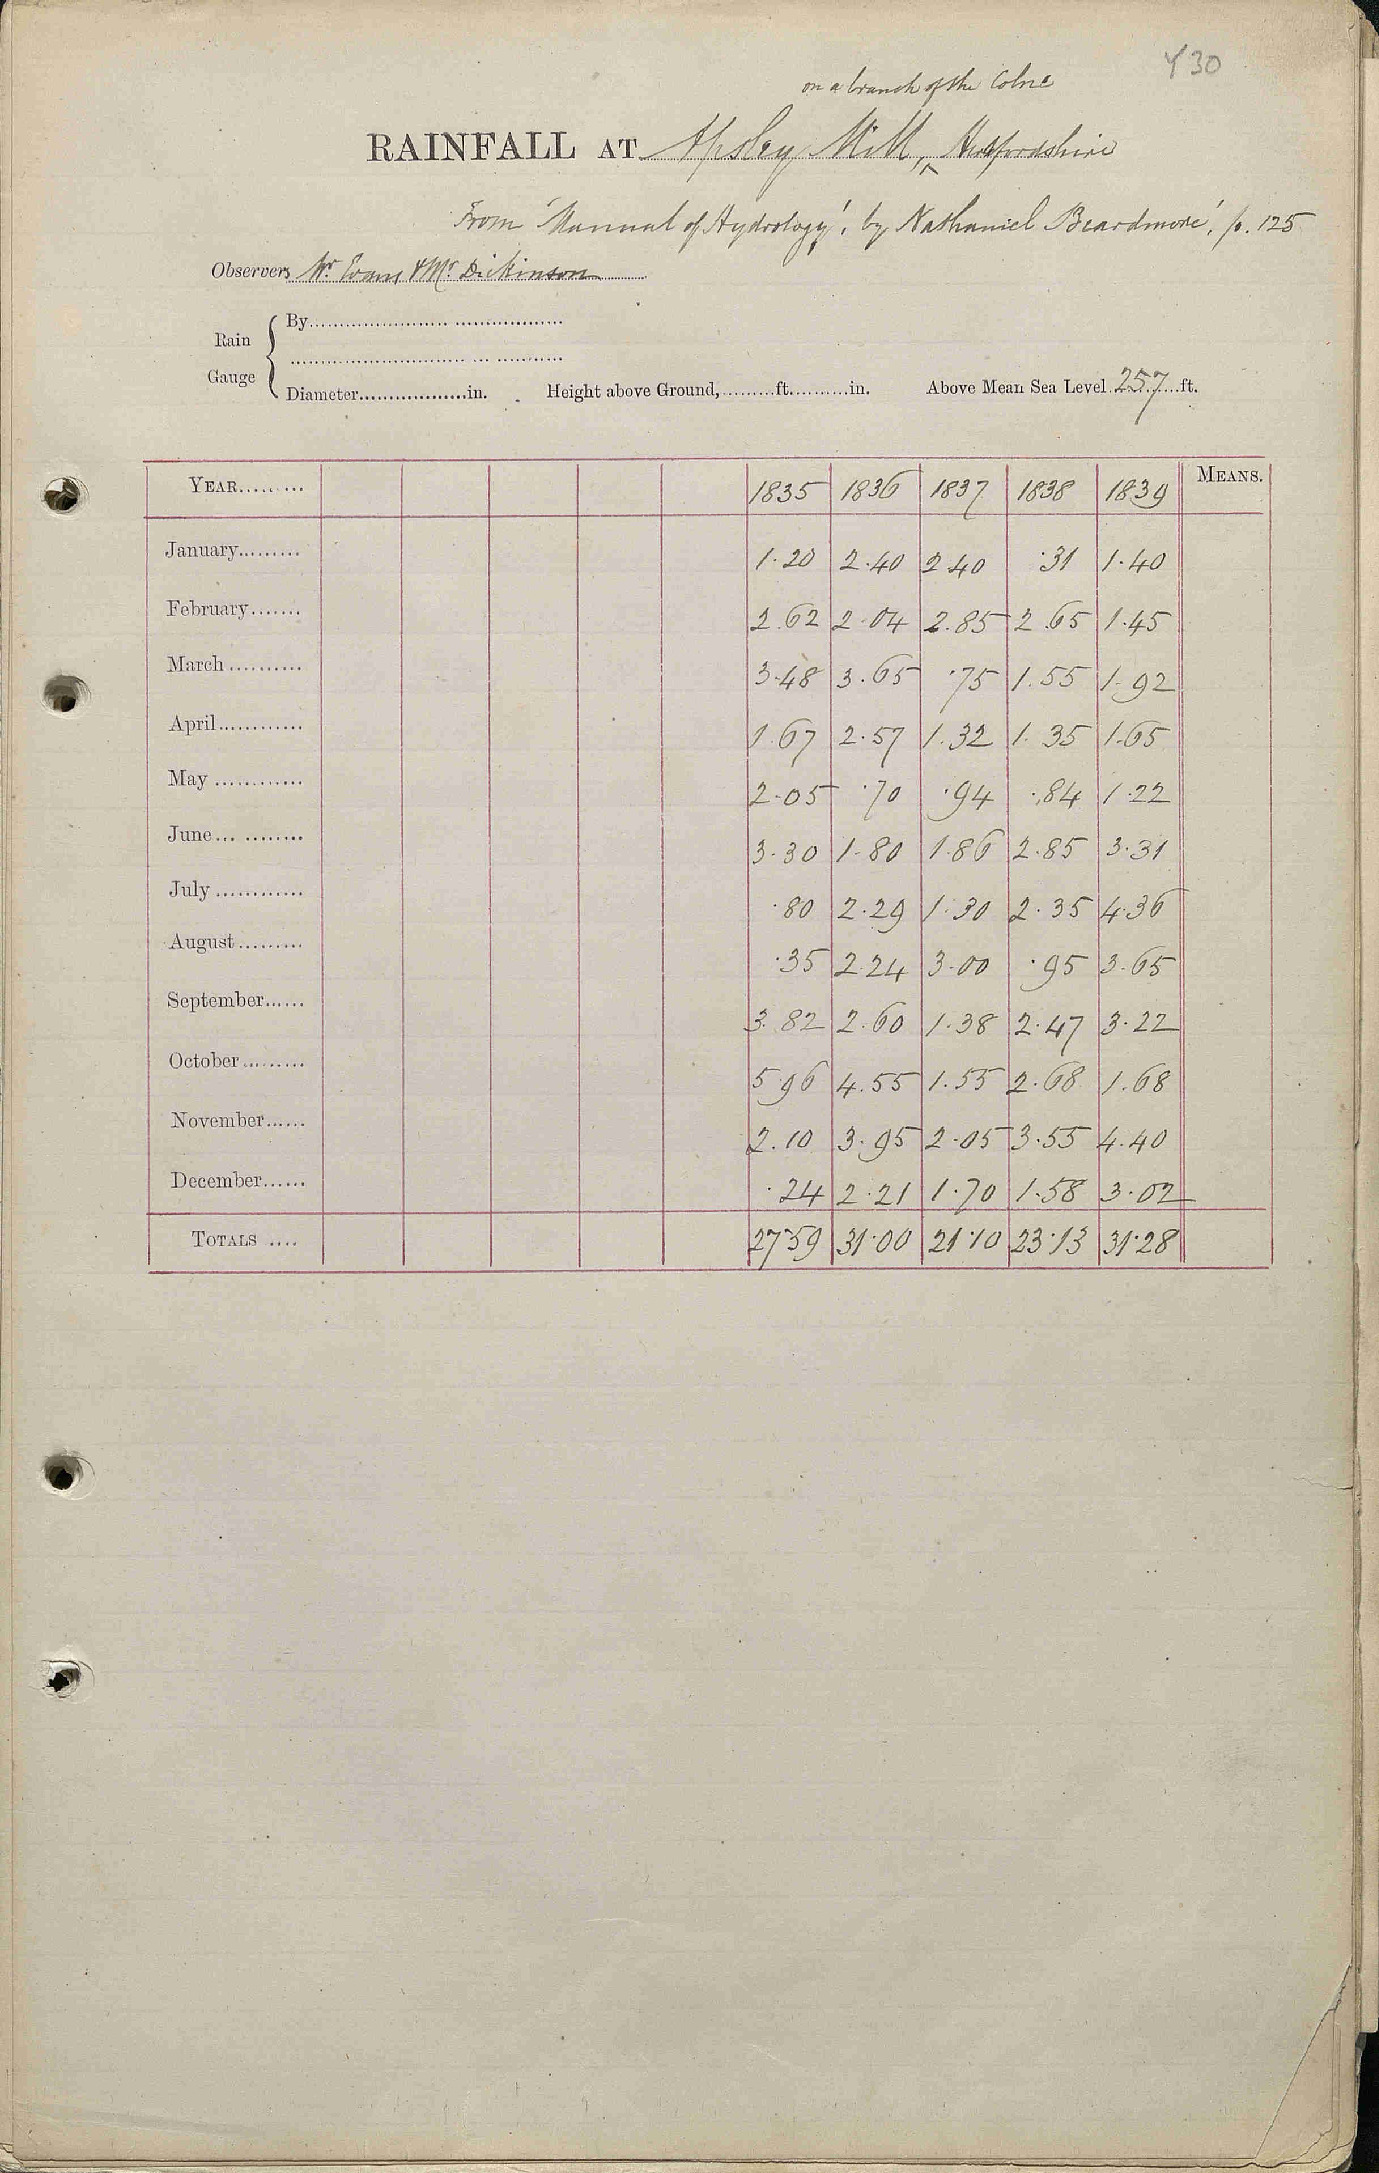 Y30
on a branch of the Colne
RAINFALL AT Apsley Mill, ^ Hertfordshire
From 'Manual of Hydrology', by Nathaniel Beardmore', p. 125
Observers Mr. Evans & Mr. Dickinson
Rain Gauge { By
Diameter in. Height above Ground, ft. in. Above Mean Sea Level 257 ft.
YEAR 1835 1836 1837 1838 1839 MEANS.
January 1.20 2.40 2 40 .31 1.40
February 2.62 2.04 2.85 2.65 1.45
March 3.48 3.65 .75 1.55 1.92
April 1.67 2.57 1.32 1.35 1.65
May 2.05 .70 .94 .84 1.22
June 3.30 1.80 1.86 2.85 3.31
July .80 2.29 1.30 2.35 4.36
August .35 2.24 3.00 .95 3.65
September 3.82 2.60 1.38 2.47 3.22
October 5.96 4.55 1.55 2.68 1.68
November 2.10 3.95 2.05 3.55 4.40
December .24 2.21 1.70 1.58 3.02
TOTALS 27.59 31.00 21.10 23.13 31.28